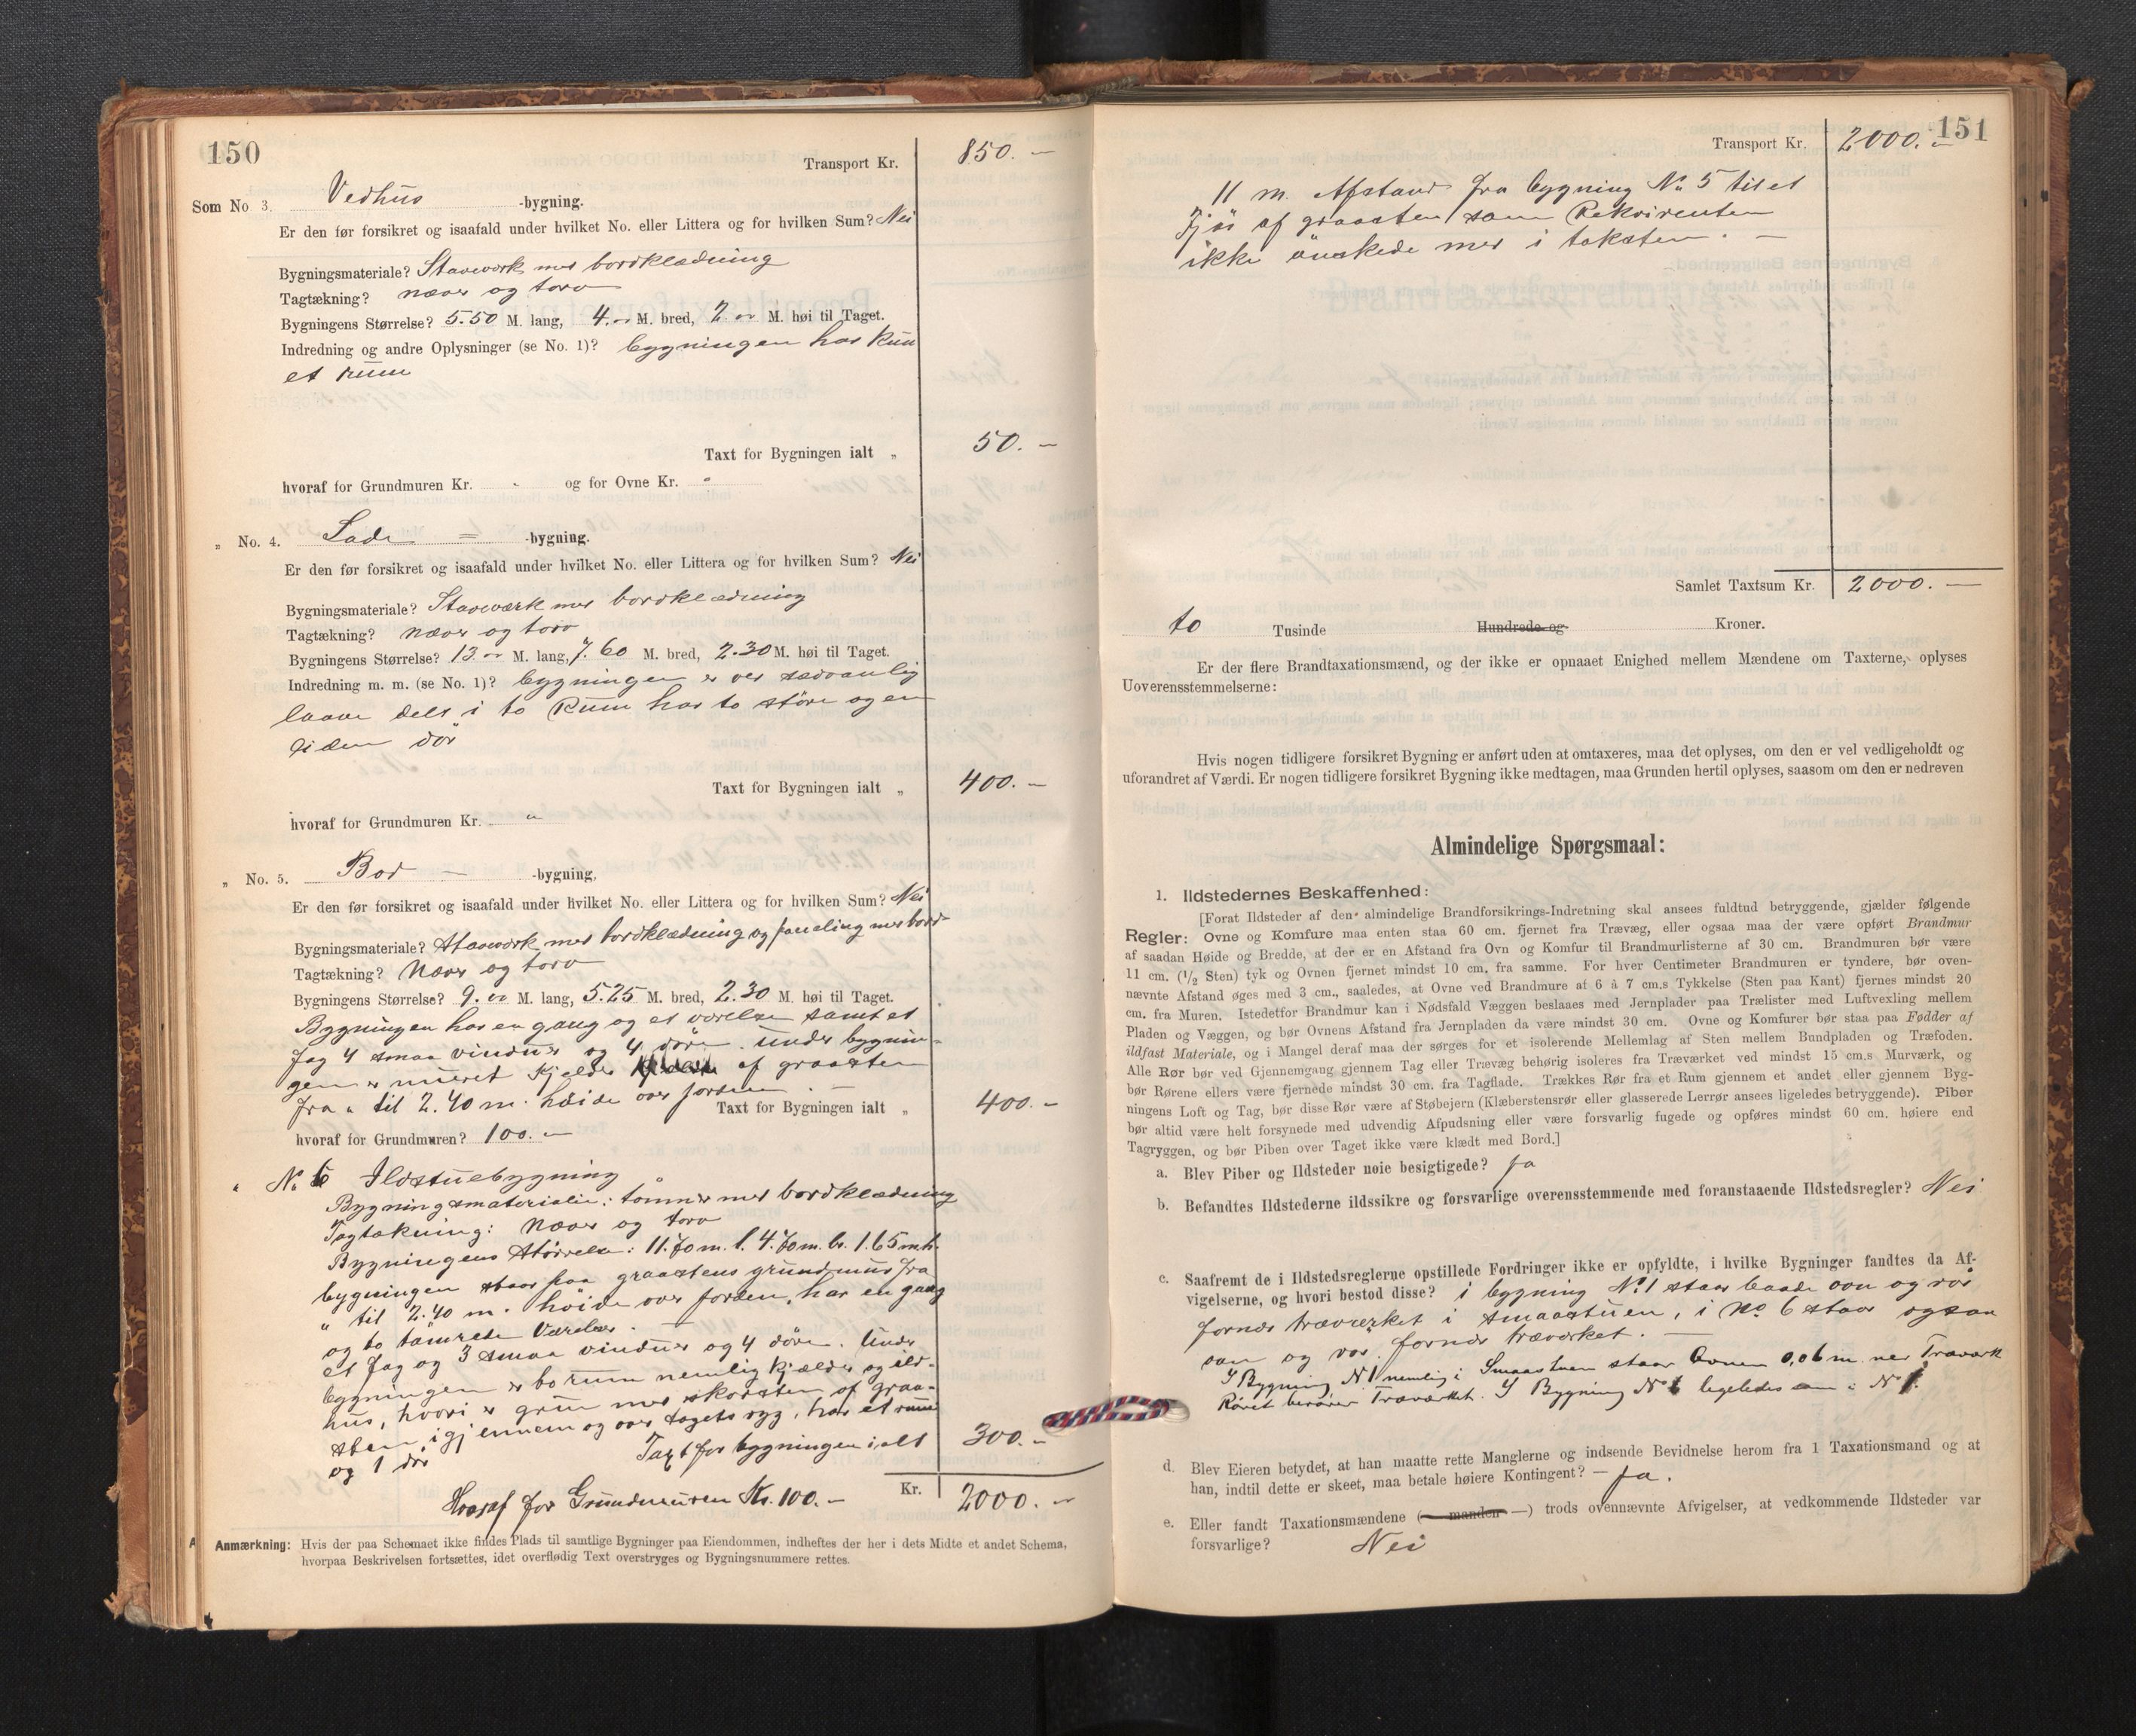 150
Transport Kr. 850. –
Som No 3. Vedhus -bygning.
Er den før forsikret og isaafald under hvilket No. eller Littera og for hvilken Sum? Nei
Bygningsmateriale? Stavverk med bordklædning
Tagtækning? næver og torv
Bygningens Størrelse? 5.50 M. lang, 4. „ M. bred, 2 „ M. høi til Taget.
Indredning og andre Oplysninger (se No. 1)? bygningen har kun
et rum
Taxt for Bygningen ialt „ 50. –
hvoraf for Grundmuren Kr. „ og for Ovne Kr. „
„ No. 4. Lade = -bygning.
Er den før forsikret og isaafald under hvilket No. eller Littera og for hvilken Sum? Nei
Bygningsmateriale? Staværk med bordklædning
Tagtækning? næver og torv
Bygningens Størrelse? 13 „ M. lang, 7.60 M. bred, 2.30 M. høi til Taget.
Indredning m. m. (se No. 1)? bygningen er ved sædvanlig
laave delt i to Rum har to störe og en
liden dör
Taxt for Bygningen ialt „ 400. –
hvoraf for Grundmuren Kr. „
„ No. 5. Bod – -bygning,
Er den før forsikret og isaafald under hvilket No. eller Littera og for hvilken Sum? Nei
Bygningsmateriale? Stavverk med bordklædning og paneling med bord
Tagtækning? Næver og torv
Bygningens Størrelse? 9. „ M. lang, 5.25 M. bred, 2.30 M. høi til Taget.
Bygningen har en gang og et værelse samt et
fag 4 smaa vinduer og 4 döre. Under bygnin-
gen er muret kjelder af graasten
fra „ til 2.40 m. höide over jorden. –
Taxt for Bygningen ialt „ 400. –
hvoraf for Grundmuren? 100. –
„ No 6 Ildstuebygning
Bygningsmateriale: tømmer med bordklædning
Tagtækning: Næver og torv
Bygningens Störrelse: 11.70 m. l. 4.70 m. br. 1.65 m h.
bygningen staar paa graastens grundmur fra
„ til 2.40 m. höide over jorden, har en gang
og to tömrede Værelser. –
et fag og 3 smaa vinduer og 4 döre. Under
bygningen er to rum nemlig kjælder og ild-
hus, hvori er gruve med skorsten af graa-
sten igjennem og over tagets ryg, har et rum
og 1 dör
Taxt for bygningen ialt 300. –
Hvoraf for Grundmuren Kr. 100. –
Kr. 2000. –
Anmærkning: Hvis der paa Schemaet ikke findes Plads til samtlige Bygninger paa Eiendommen, indheftes der her i dets Midte et andet Schema,
hvorpaa Beskrivelsen fortsættes, idet overflødig Text overstryges og Bygningsnummere rettes.
151
Transport Kr. 2000. –
11 m. Afstand fra bygning No 5 til et
Fjös af graasten som Rekvirenten
ikke önskede med i taksten. –
Samlet Taxtsum Kr. 2000. –
to Tusinde Hundrede og Kroner.
Er der flere Brandtaxationsmænd, og der ikke er opnaaet Enighed mellem Mændene om Taxterne, oplyses
Uoverensstemmelserne:
Hvis nogen tidligere forsikret Bygning er anført uden at omtaxeres, maa det oplyses, om den er vel vedligeholdt og
uforandret af Værdi. Er nogen tidligere forsikret Bygning ikke medtagen, maa Grunden hertil oplyses, saasom om den er nedreven
Almindelige Spørgsmaal:
1. Ildstedernes Beskaffenhed:
[Forat Ildsteder af den almindelige Brandforsikrings-Indretning skal ansees fuldtud betryggende, gjælder følgende
Regler: Ovne og Komfure maa enten staa 60 cm. fjernet fra Trævæg, eller ogsaa maa der være opført Brandmur
af saadan Høide og Bredde, at der er en Afstand fra Ovn og Komfur til Brandmurlisterne af 30 cm. Brandmuren bør være
11 cm. (1/2 Sten) tyk og Ovnen fjernet mindst 10 cm. fra samme. For hver Centimeter Brandmuren er tyndere, bør oven-
nævnte Afstand øges med 3 cm., saaledes, at Ovne ved Brandmure af 6 à 7 cm.s Tykkelse (Sten paa Kant) fjernes mindst 20
cm. fra Muren. Istedetfor Brandmur kan i Nødsfald Væggen beslaaes med Jernplader paa Trælister med Luftvexling mellem
Pladen og Væggen, og bør Ovnens Afstand fra Jernpladen da være mindst 30 cm. Ovne og Komfurer bør staa paa Fødder af
ildfast Materiale, og i Mangel deraf maa der sørges for et isolerende Mellemlag af Sten mellem Bundpladen og Træfoden.
Alle Rør bør ved Gjennemgang gjennem Tag eller Trævæg behørig isoleres fra Træværket ved mindst 15 cm.s Murværk, og
bør Rørene ellers være fjernede mindst 30 cm. fra Tagflade. Trækkes Rør fra et Rum gjennem et andet eller gjennem Byg-
ningens Loft og Tag, bør disse Rør være af Støbejern (Klæberstensrør eller glasserede Lerrør ansees ligeledes betryggende). Piber
bør altid være helt forsynede med udvendig Afpudsning eller være forsvarlig fugede og opføres mindst 60 cm. høiere end
Tagryggen, og bør Piben over Taget ikke være klædt med Bord.]
a. Blev Piber og Ildsteder nøie besigtigede? Ja
b. Befandtes Ildstederne ildssikre og forsvarlige overensstemmende med foranstaaende Ildstedsregler? Nei
c. Saafremt de i Ildstedsreglerne opstillede Fordringer ikke er opfyldte, i hvilke Bygninger fandtes da Af-
vigelserne, og hvori bestod disse? i bygning No 1 staar baade ovn og rör
for nær træværket i smaastuen, i No 6 staar ogsaa
ovn og rör for nær træværket. –
I Bygning N 1 nemlig i Smaastuen staar Ovnen 0,06 m. nær Træværk
Röret berörer Træværket. I Bygning No 6 ligeledes som i N 1.
d. Blev Eieren betydet, at han maatte rette Manglerne og indsende Bevidnelse herom fra 1 Taxationsmand og at
han, indtil dette er skeet, maa betale høiere Kontingent? – Ja.
e. Eller fandt Taxationsmændene (— manden —) trods ovennævnte Afvigelser, at vedkommende Ildsteder var
forsvarlige? Nei